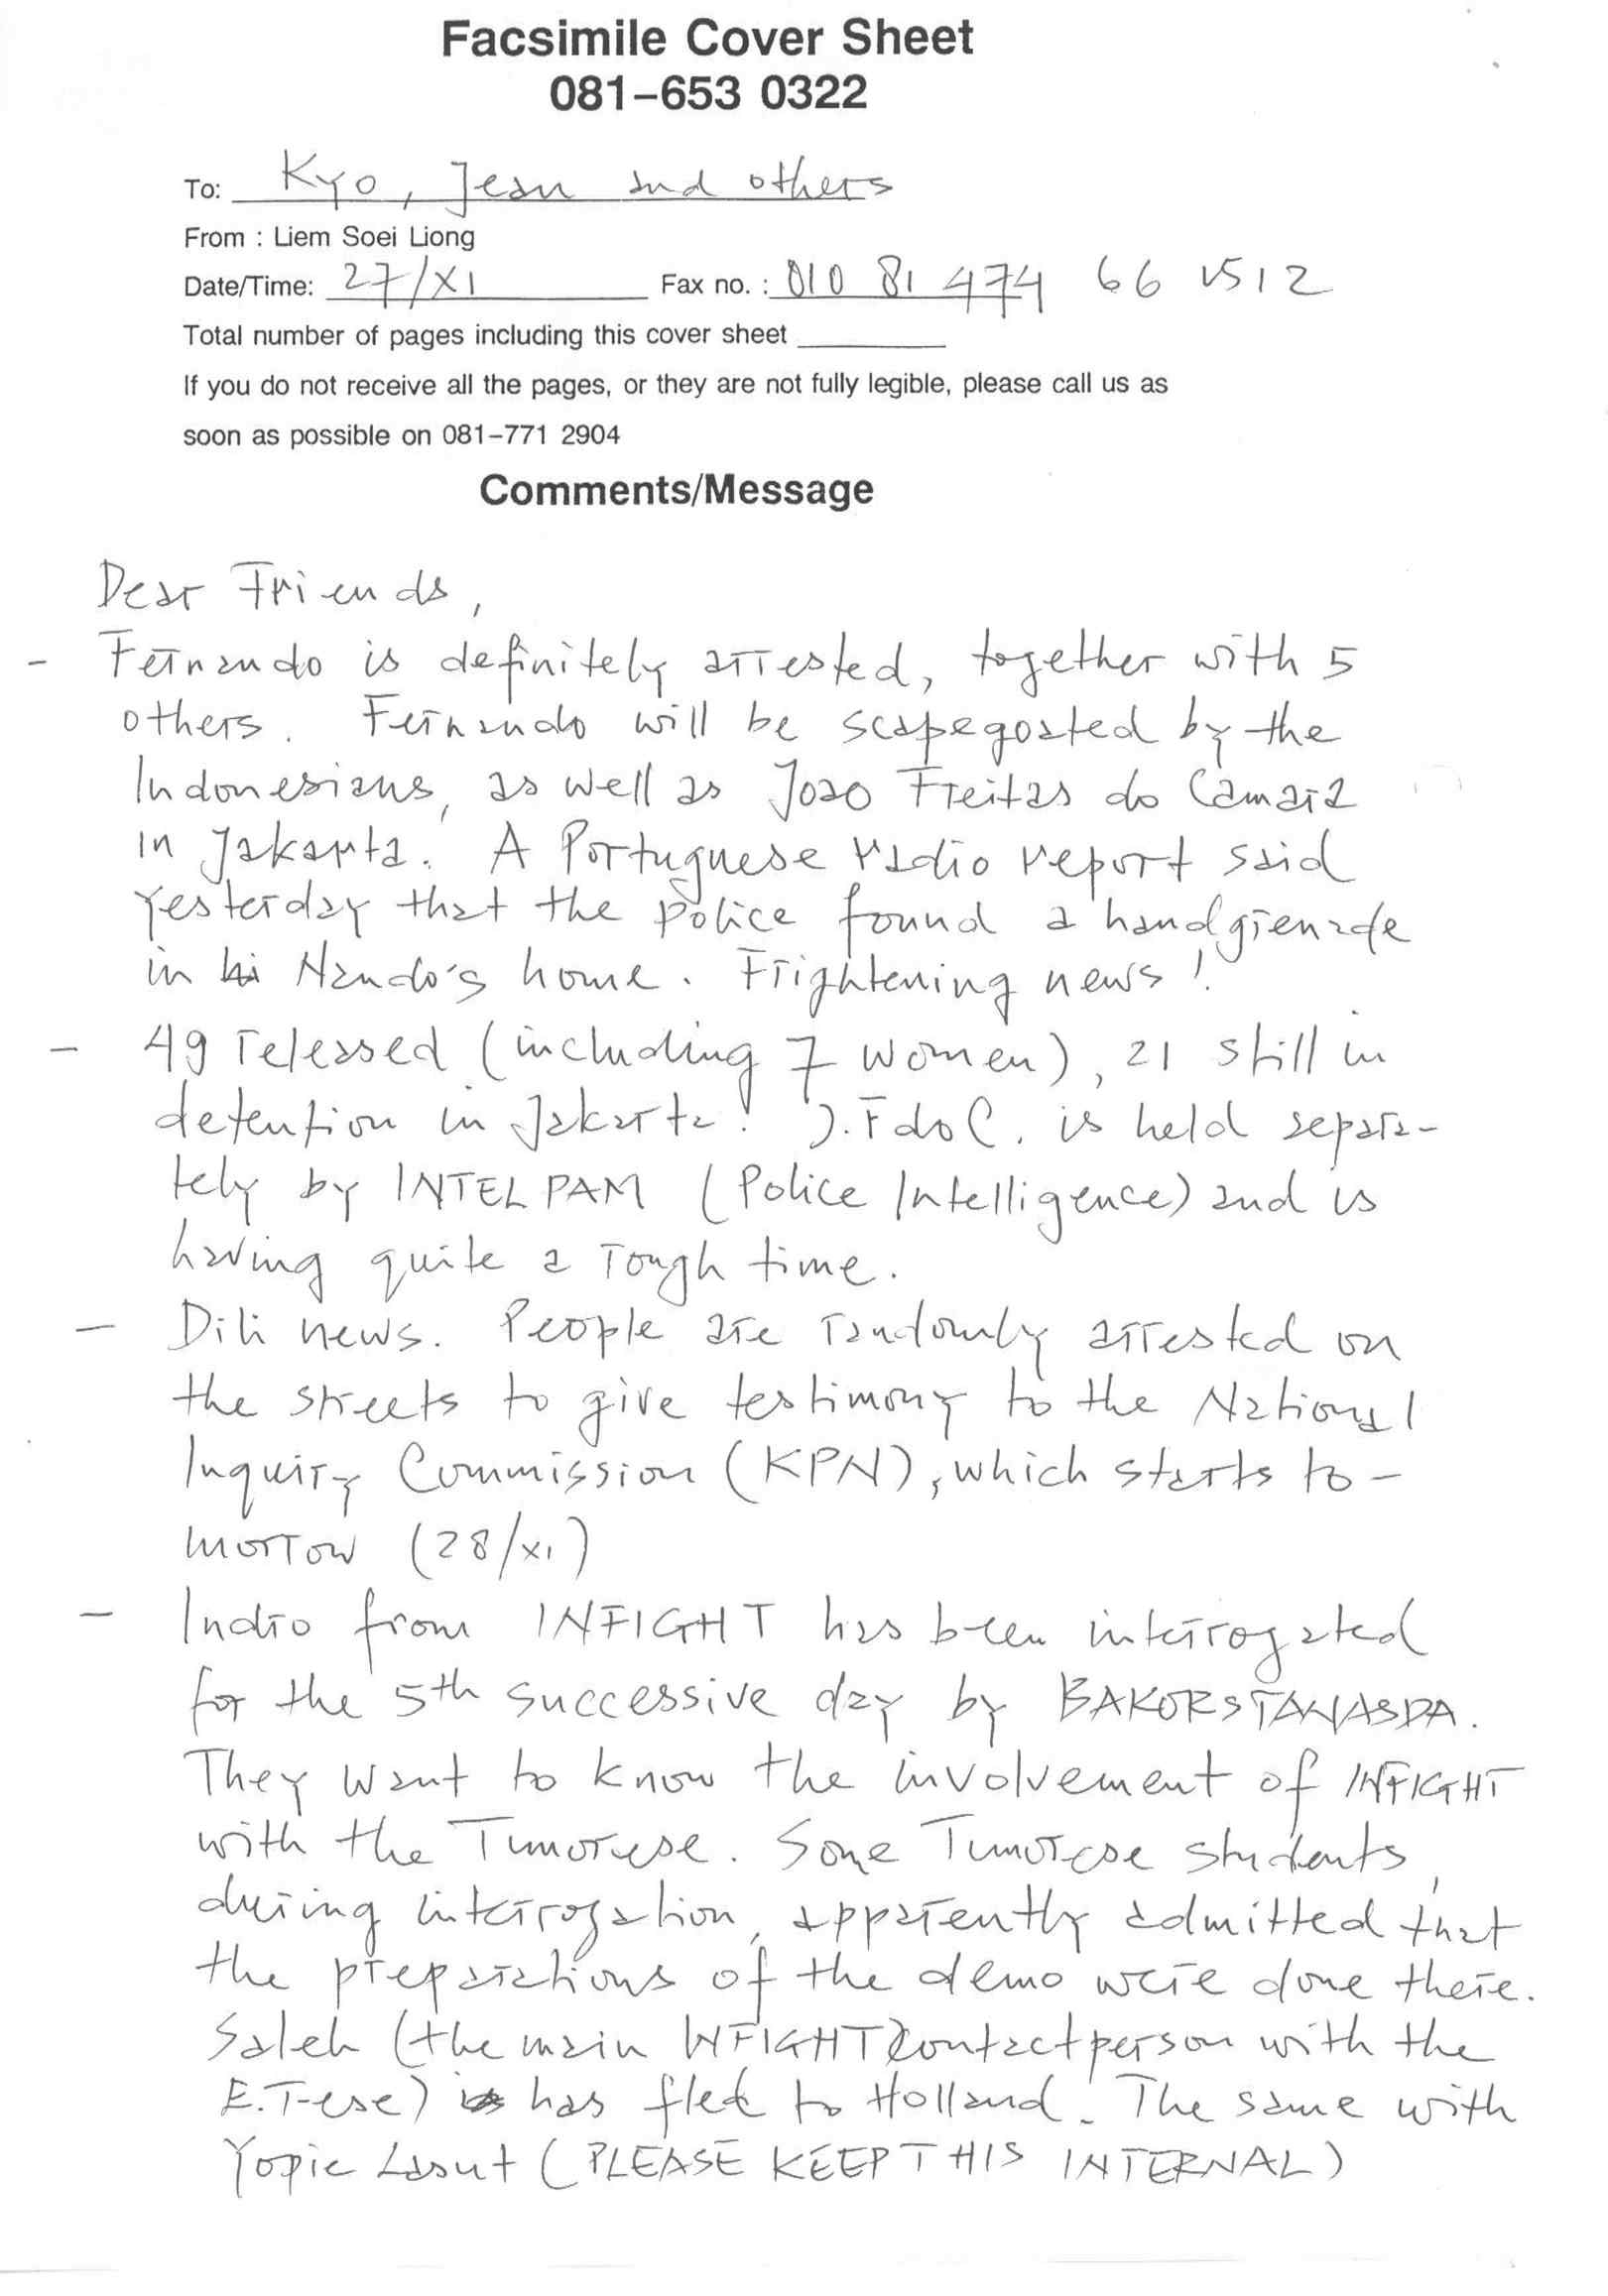 Facsimile Cover Sheet
081-653 0322
To: Kyo, Jean and others
From : Liem Soei Liong
Date/Time: 27/XI Fax no. : 010 81 474 66 1512
Total number of pages including this cover sheet
If you do not receive all the pages, or they are not fully legible, please call us as
soon as possible on 081-771 2904
Comments/Message
Dear Friends,
- Fernando is definitely arrested, together with 5
others. Fernando will be scapegoated by the
Indonesians, as well as Joao Freitas do Camara
in Jakarta. A Portuguese radio report said
yesterday that the police found a handgrenade
in Nando's home. Frightening news!
- 49 released (including 7 women), 21 still in
detention in Jakarta! J.FdoC. is held separa-
tely by INTELPAM (Police Intelligence) and is
having quite a rough time.
- Dili news. People are randomly arrested on
the streets to give testimony to the National
Inquiry Commission (KPN), which starts to-
morrow (28/XI)
- Indro from INFIGHT has been interrogated
for the 5th successive day by BAKORSTANASDA.
They want to know the involvement of INFIGHT
with the Timorese. Some Timorese students,
during interrogation, apparently admitted that
the preparations of the demo were done there.
Saleh (the main INFIGHT contactperson with the
E.T-ese) has fled to Holland. The same with
Yopie Lasut (PLEASE KEEP THIS INTERNAL)